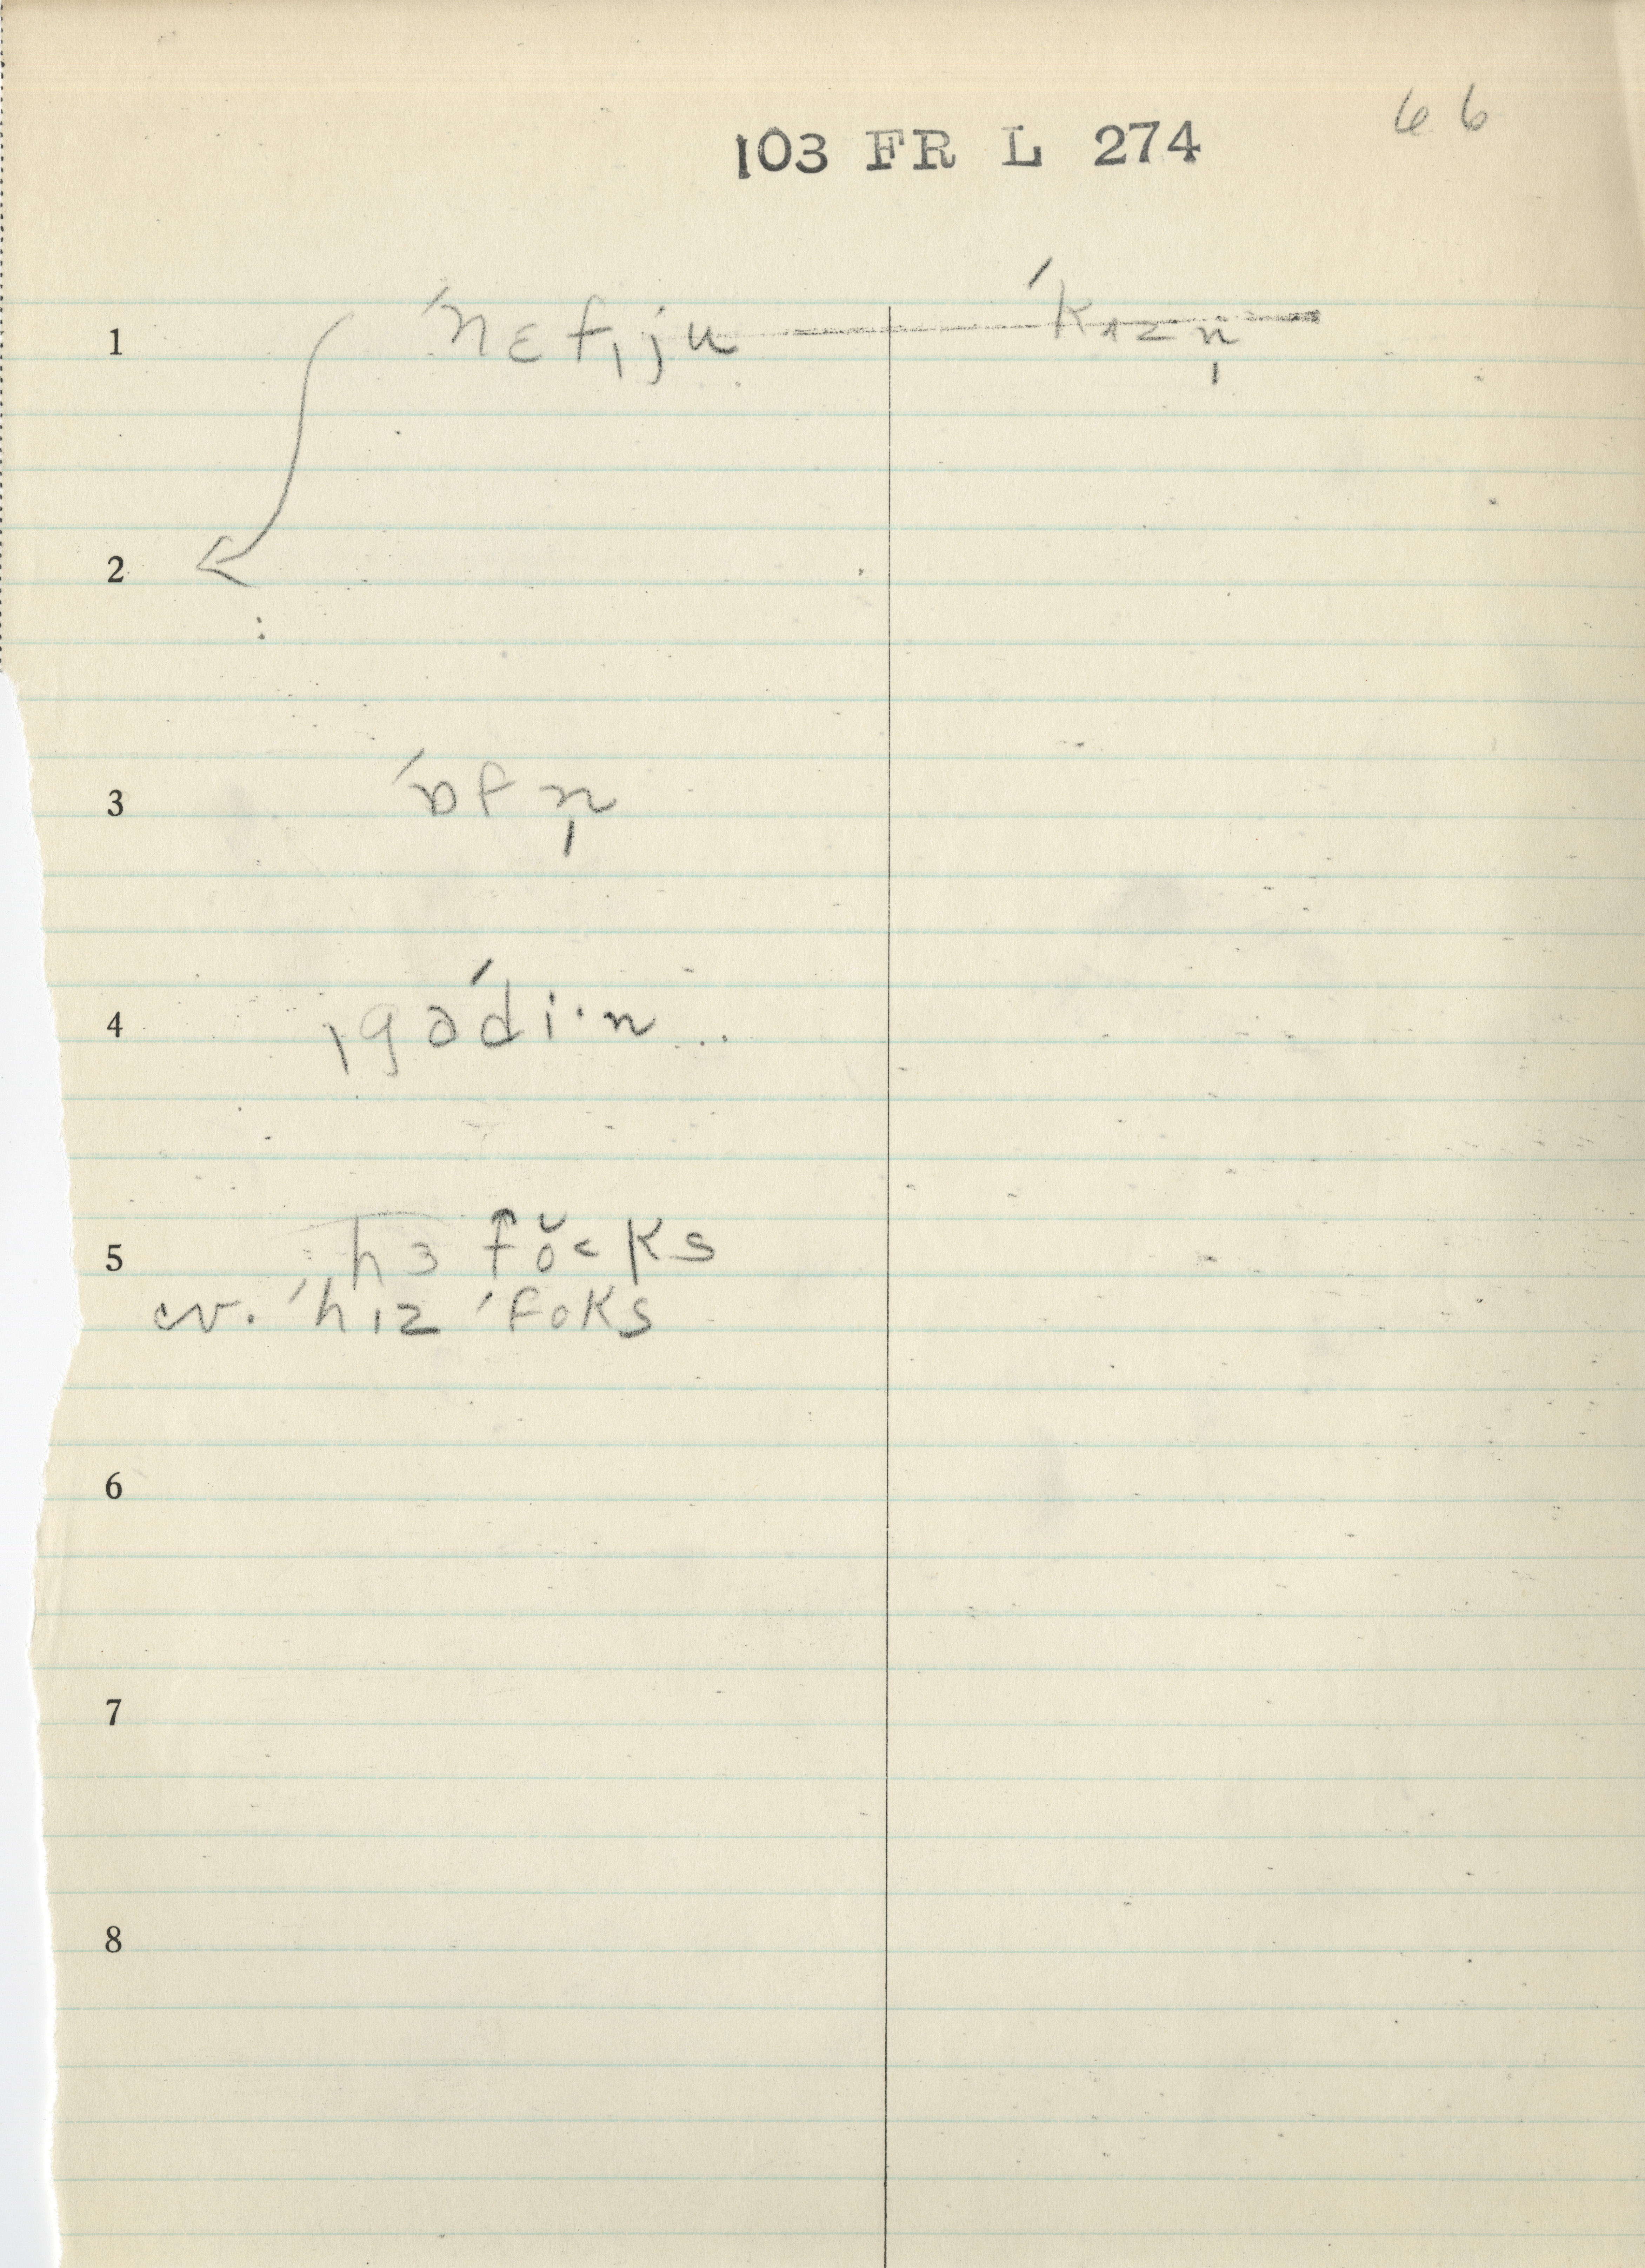 66
103 FR L 274
1 ˈnɛfˌju ˈkʌzn̩
2
3 ˈɒfn̩
4 ˌgəˈdi·n
5 hɜ fŏ˂ks
cv. ˈhɪz ˈfoks
6
7
8